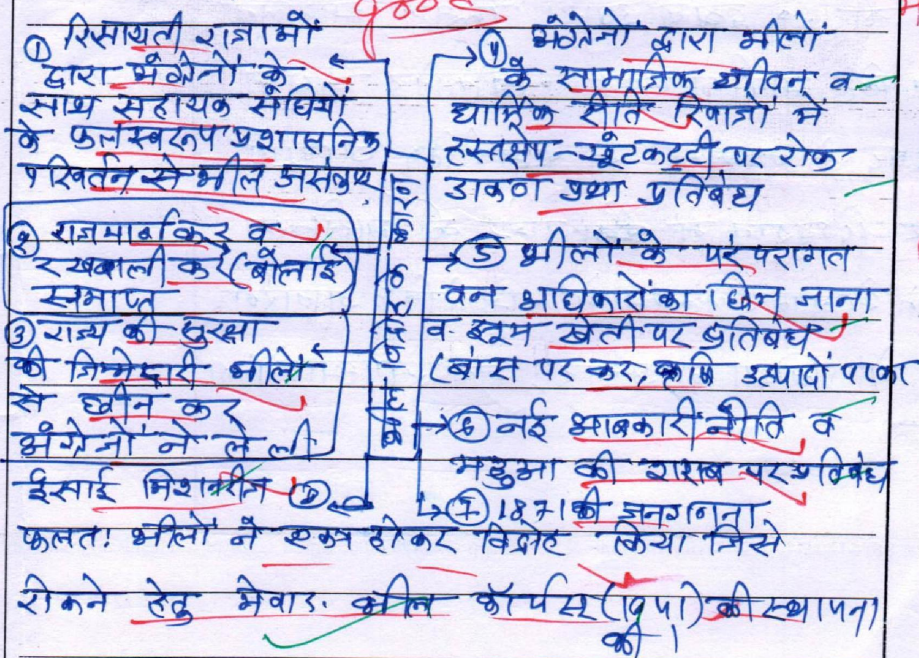 good
① रिसायती राजाओं
द्वारा अंग्रेजों के
साथ सहायक संधियों
के फलस्वरूप प्रशासनिक
परिवर्तन से भील असंतुष्ट
② राजमार्ग कर व
रखवाली कर (बोलाई)
समाप्त
③ राज्य की सुरक्षा
की जिम्मेदारी भीलों
से छीन कर
अंग्रेजों ने ले ली
ईसाई मिशनरीज ⑧
भील विद्रोह के कारण
④ अंग्रेजों द्वारा भीलों
के सामाजिक जीवन व
धार्मिक रीति रिवाजों में
हस्तक्षेप - खूंटकट्टी पर रोक
डाकण प्रथा प्रतिबंध
⑤ भीलों के परंपरागत
वन अधिकारों का छिन जाना
व झूम खेती पर प्रतिबंध
(बांस पर कर, कृषि उत्पादों पर कर
⑥ नई आबकारी नीति व
महुआ की शराब पर प्रतिबंध
⑦ 1871 की जनगणना
फलतः भीलों ने एकत्र होकर विद्रोह किया जिसे
रोकने हेतु मेवाड़ भील कॉर्पस (1941) की स्थापना
की।